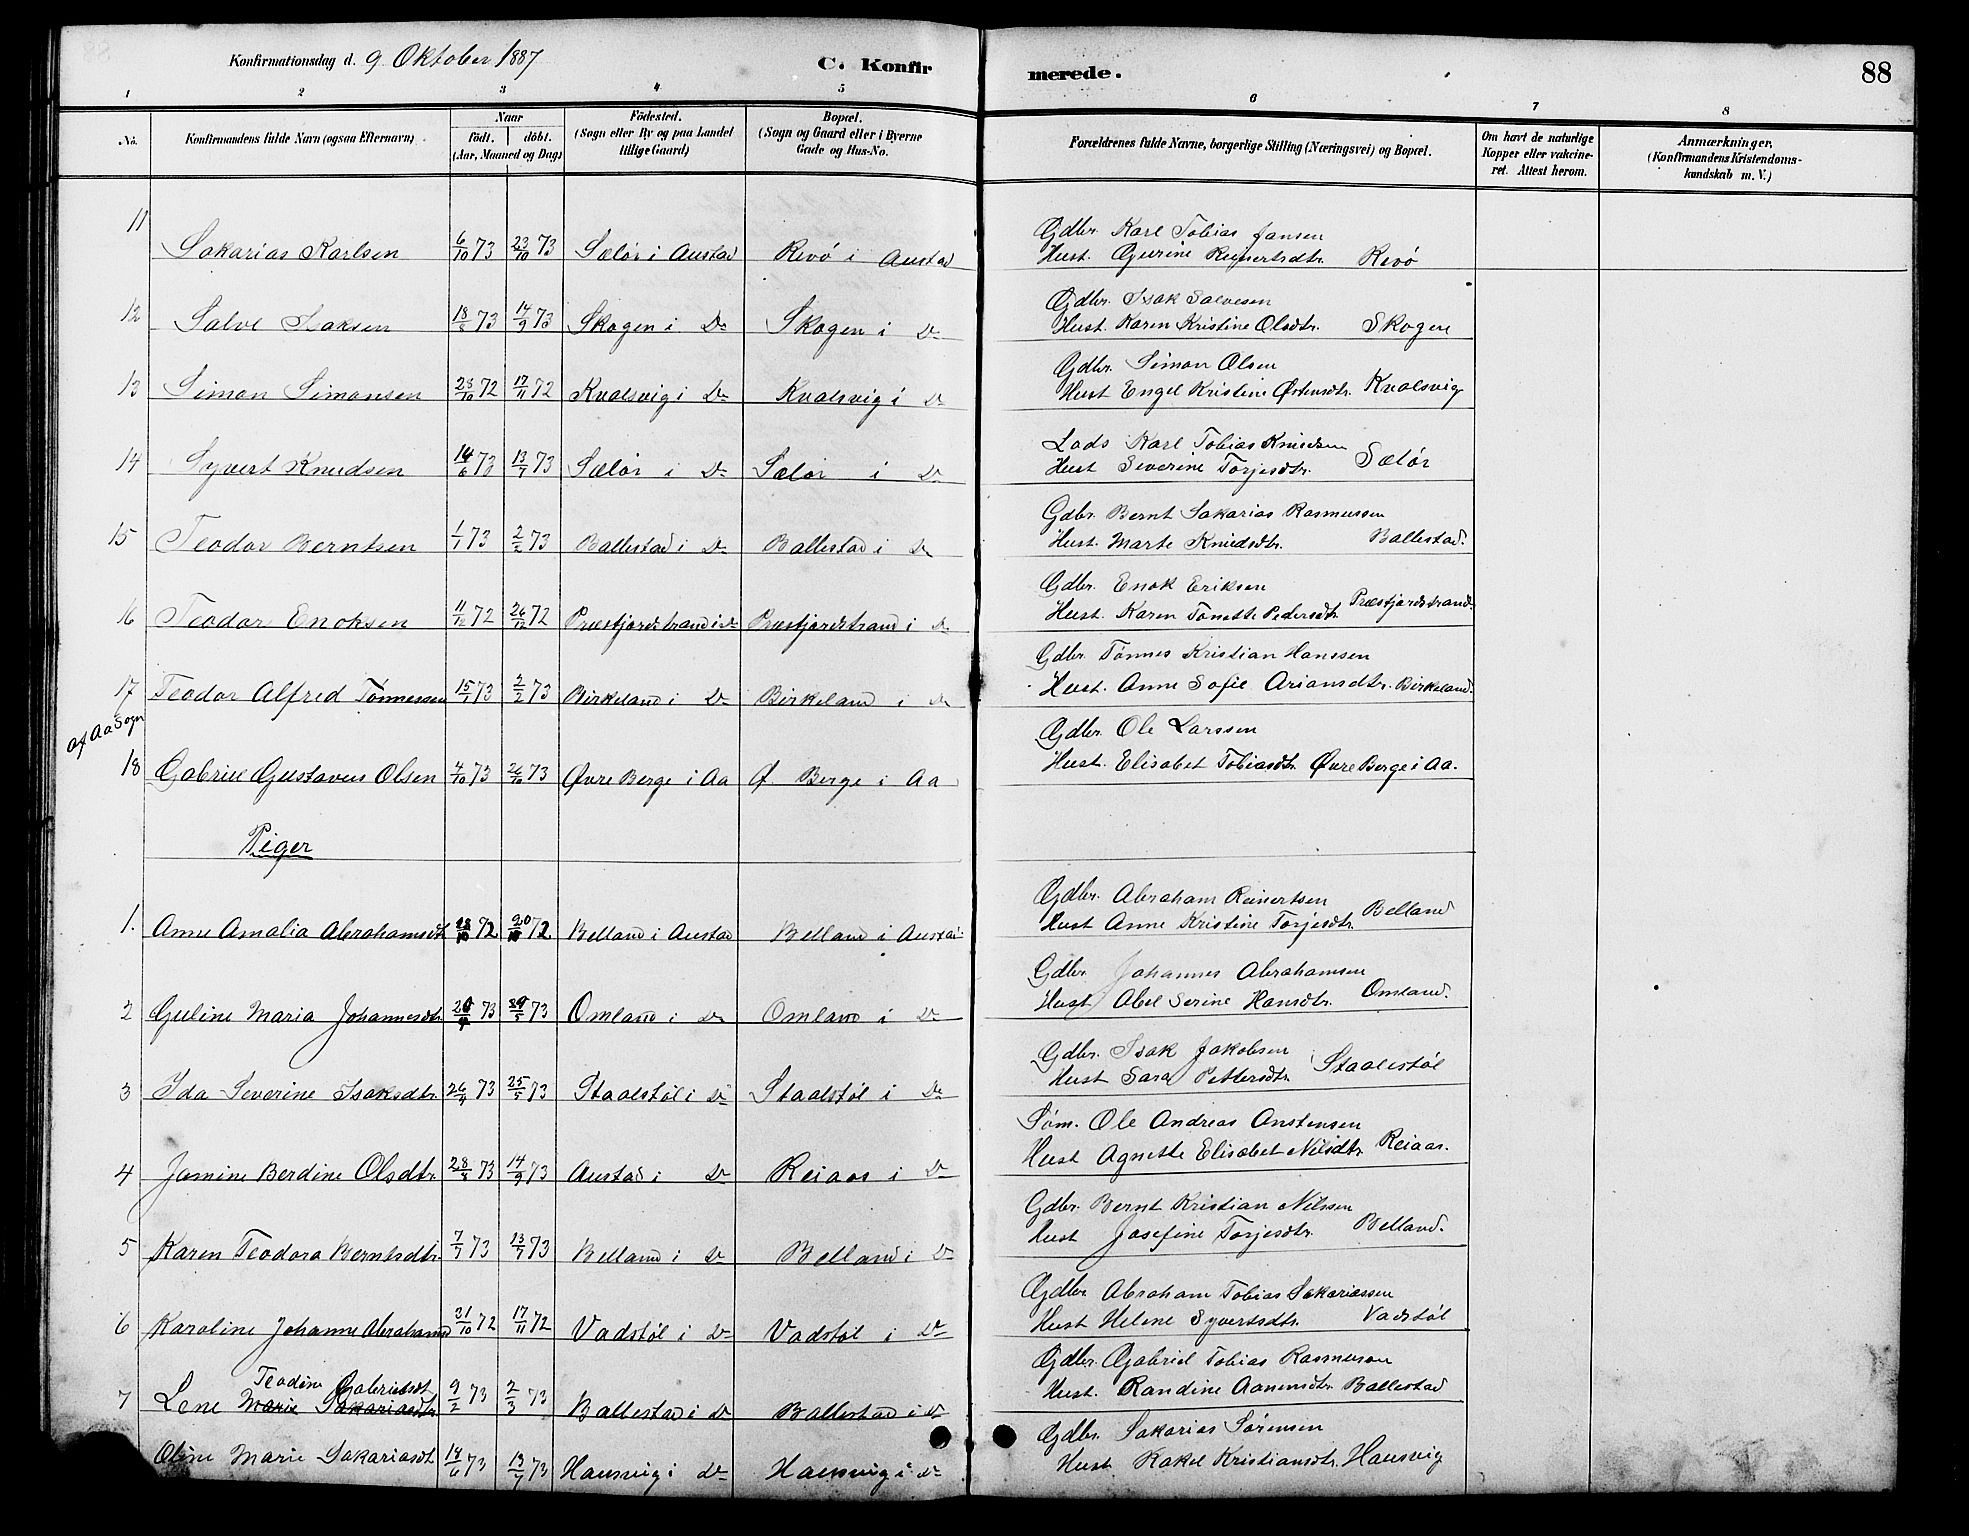 Konfirmationsdag d. 9 Oktober 1887
C. Konfirmerede.
88
1 2 3 4 5 6 7 8
No.
Konfirmandens fulde Navn (ogsaa Efternavn)
Naar
födt. döbt.
(Aar, Maaned og Dag)
Födested.
(Sogn eller By og paa Landet
tillige Gaard)
Bopæl.
(Sogn og Gaard eller i Byerne
Gade og Hus-No.
Forældrenes fulde Navne, borgerlige Stilling (Næringsvei) og Bopæl.
Om havt de naturlige
Kopper eller vakcine-
ret. Attest herom.
Anmærkninger.
(Konfirmandens Kristendoms-
kundskab m. V.)
11 Sakarias Karlsen 6/10 73 23/10 73 Sælør i Austad Revø i Austad
Gdbr. Karl Tobias Jansen
Hust. Gurine Reinertsdtr. Revø
12 Salve Isaksen 18/8 73 14/9 73 Skogen i Do Skogen i Do
Gdbr. Isak Salvesen
Hust. Karen Kristine Olsdtr. Skogen
13 Simon Simonsen 23/10 72 17/11 72 Kvalsvig i Do Kvalsvig i Do
Gdbr. Simon Olsen
Hust Engel Kristine Østensdtr. Kvalsvig
14 Syvert Knudsen 14/6 73 13/7 73 Sælør i Do Sælør i Do
Lods Karl Tobias Knudsen
Hust Severine Torjesdtr. Sælør
15 Teodor Berntsen 1/1 73 2/2 73 Ballestad i Do Ballestad i Do
Gdbr. Bernt Sakarias Rasmussen
Hust. Marte Knudsdtr. Ballestad.
16 Teodor Enoksen 11/12 72 26/12 72 Præstfjordstrand i Do Præstfjordstrand i Do
Gdbr. Enok Eriksen
Hust. Karen Tonette Pedersdtr. Præstfjordstrand.
17 Teodor Alfred Tønnessen 15/1 73 2/2 73 Birkeland i Do Birkeland i Do
Gdbr. Tønnes Kristian Hanssen
Hust. Anne Sofie Ariansdtr. Birkeland.
af Aa Sogn
18 Gabriel Gustavus Olsen 4/10 73 26/10 73 Øvre Berge i Aa Ø. Berge i Aa
Gdbr. Ole Larssen
Hust. Elisabet Tobiasdtr. Øvre Berge i Aa.
Piger
1. Anne Amalia Abrahamsdt 72 72 Belland i Austad Belland i Austad
Gdbr. Abraham Reinertsen
Hust Anne Kristine Torjesdtr. Belland
2 Guline Maria Johannesdtr. 73 73 Omland i Do Omland i Do
Gdbr. Johannes Abrahamsen
Hust Abel Serine Hansdtr. Omland.
3 Ida Severine Isaksdtr. 26/4 73 25/5 73 Staalstøl i Do Staalstøl i Do
Gdbr. Isak Jakobsen
Hust Sara Pettersdtr. Staalestøl
4 Jamine Berdine Olsdtr. 28/8 73 14/9 73 Austad i Do Reiaas i Do
Søm. Ole Andreas Anstensen
Hust Agnette Elisabet Nilsdtr. Reiaas.
5 Karen Teodora Berntsdtr. 7/7 73 13/7 73 Belland i Do Belland i Do
Gdbr. Bernt Kristian Nilssen
Hust Josefine Torjesdtr. Belland.
6 Karoline Johanne Abrahamsd 31/10 72 17/11 72 Vadstøl i Do Vadstøl i Do
Gdbr. Abraham Tobias Sakariassen
Hust Helene Syvertsdtr. Vadstøl
Teodine Gabrielsdt
7 Lene Marie Sakariasdtr 9/2 73 2/3 73 Ballestad i Do Ballestad i Do
Gdbr. Gabriel Tobias Rasmusen
Hust. Randine Aanensdtr. Ballestad
Oline Marie Sakariasdt. 14/6 73 13/7 73 Hausvig i Do Hausvig i Do
Gdbr. Sakarias Sørensen
Hust Rakel Kristiansdtr. Hausvig